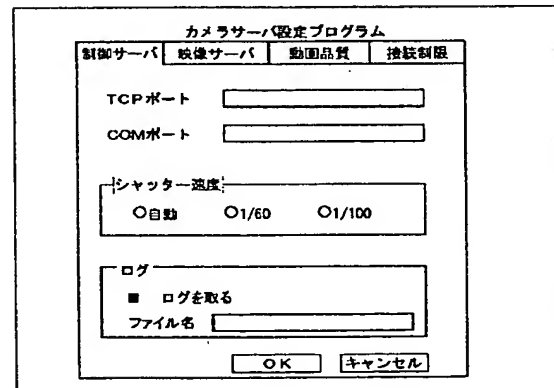 カメラサーバ設定プログラム
制御サーバ 映像サーバ 動画品質 接続制限
TCPポート
COMポート
シャッター速度
○自動 ○1/60 ○1/100
ログ
■ ログを取る
ファイル名
OK キャンセル